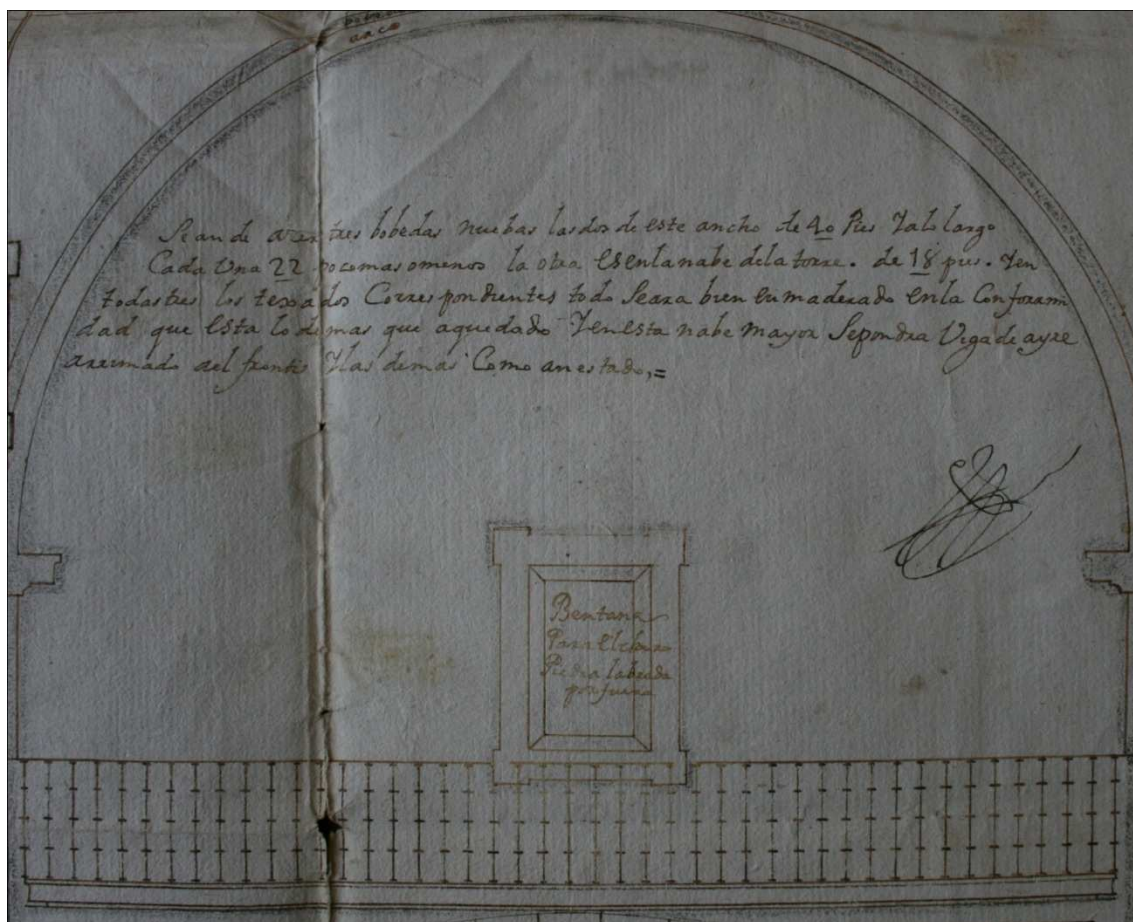 arco
Sean de azer tres bobedas nuebas las dos de este ancho de 40 Pies Y a lo largo
Cada Una 22 poco mas o menos la otra es en la nabe de la torre. de 18 pies. Y en
todas tres los texados Correspondientes todo Seara bien enmaderado en la Conformi
dad que esta lo demas que a quedado Y en esta nabe mayor Sepondra Viga de ayre
arrimado ael frontis Y las demas Como an estado,=
Bentana
Para El choro
Piedra labrada
por fuera